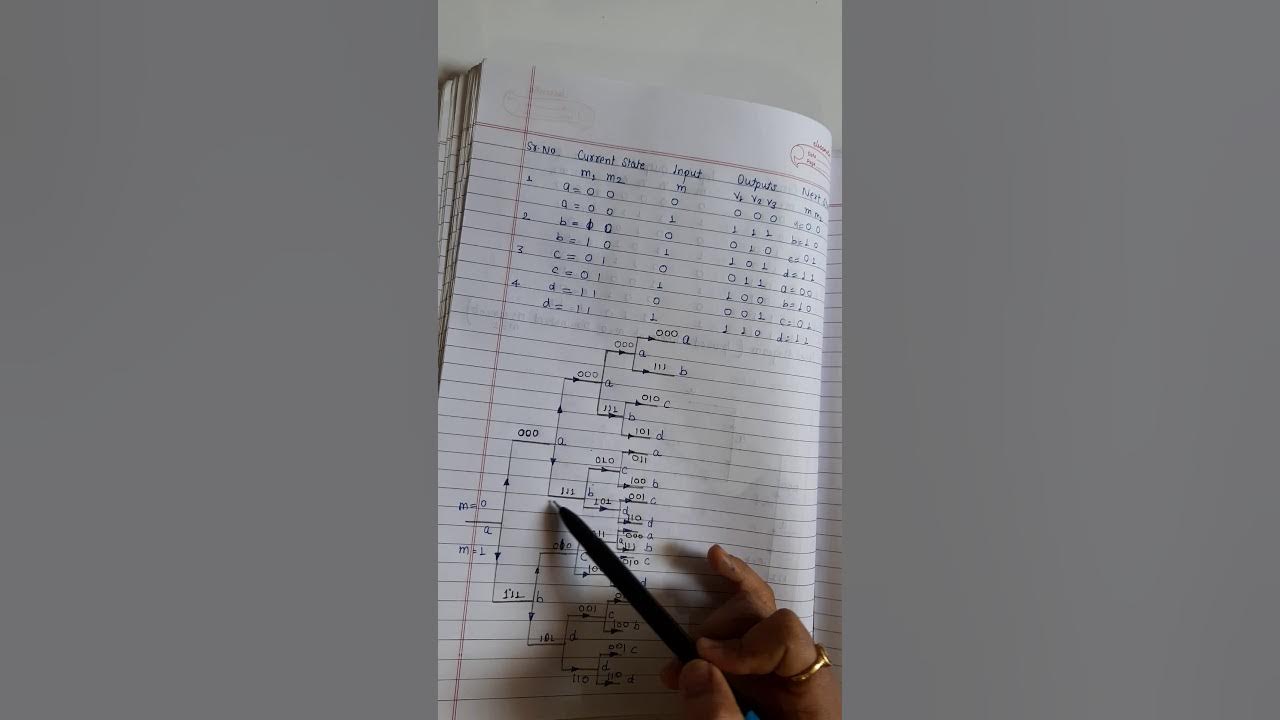 Sr. No. Current State Input Outputs Next
m₁ m₂ m v₁ v₂ v₃ m m₂
1 a = 0 0 0 0 0 0 a = 0 0
a = 0 0 1 1 1 1 b = 1 0
2 b = 1 0 0 0 1 0 c = 0 1
b = 1 0 1 1 0 1 d = 1 1
3 c = 0 1 0 0 1 1 a = 0 0
c = 0 1 1 1 0 0 b = 1 0
4 d = 1 1 0 0 0 1 c = 0 1
d = 1 1 1 1 1 0 d = 1 1
000 a
000 a
111 b
000 a
010 c
111 b
101 d
000 a
a
011
010 c
100 b
111 b
001 c
101 d
110 d
m=0
a
000 a
111 b
m=1
010 c
010 c
10
d
111 b
001 c
100 b
101 d
001 c
d
110
110 d